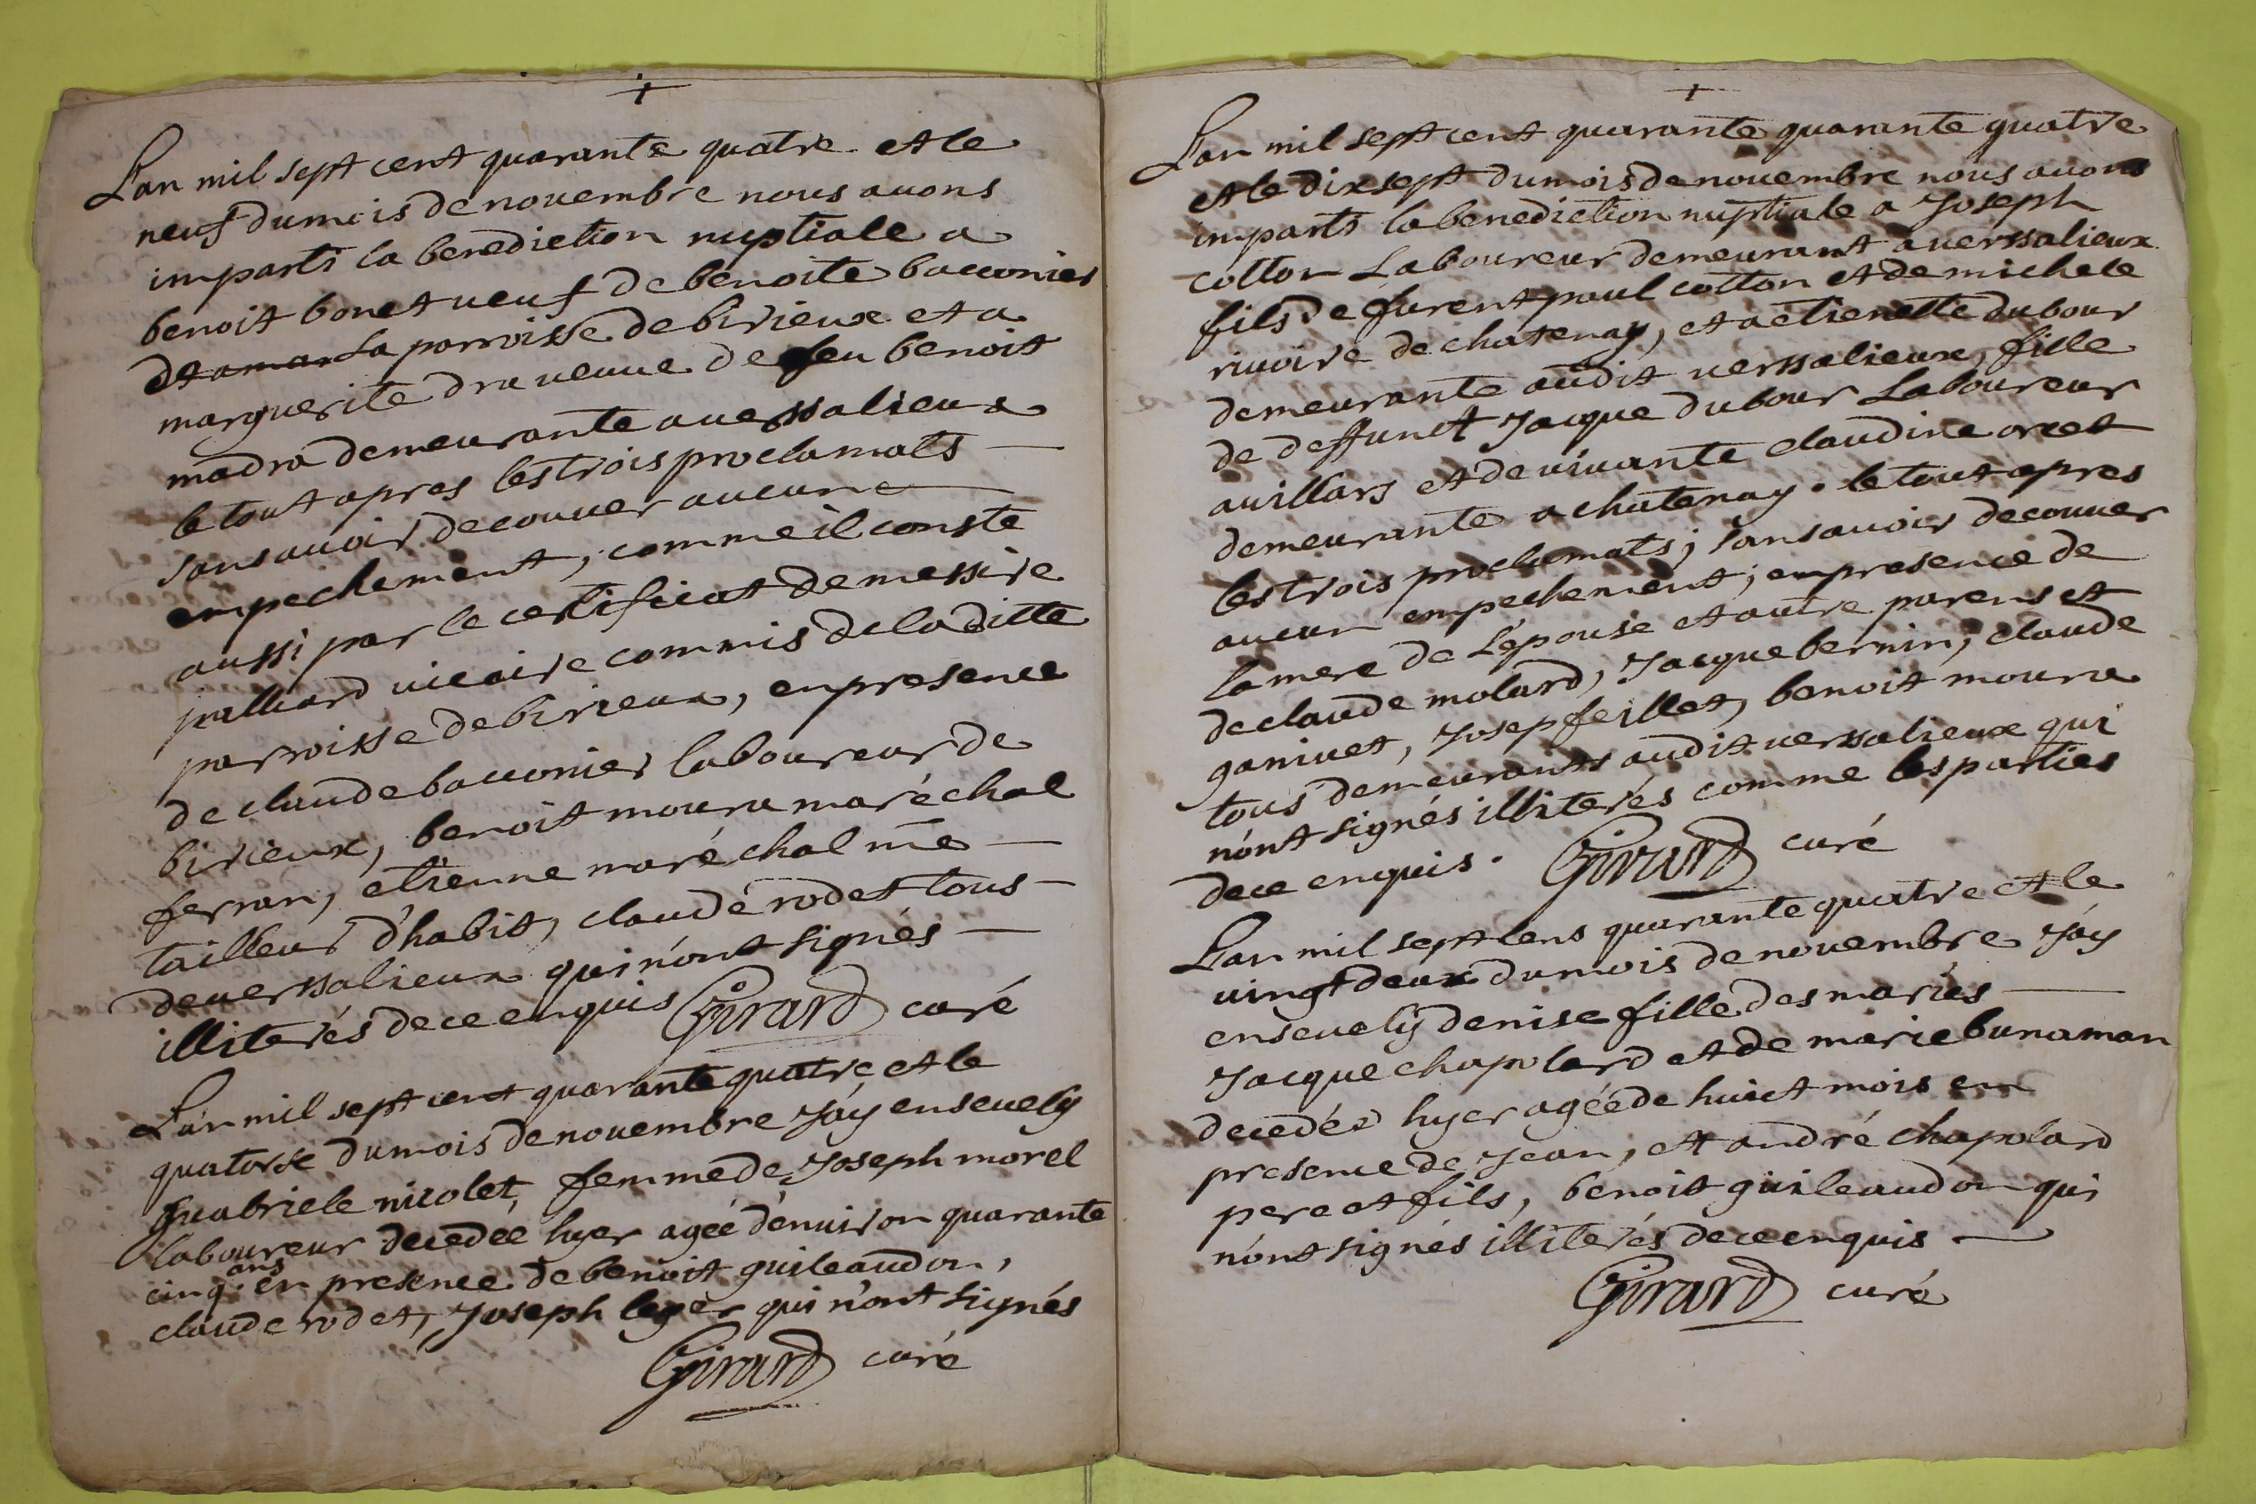 L'an mil sept cent quarante quatre et le
neuf du mois de novembre nous avons
imparti la benediction nuptiale a
benoit bonet veuf de benoite bacconier
La parroisse de birieux et a
marguerite dra veuve de feu benoit
madra demeurante a verssalieux
le tout apres les trois proclamats
sans avoir decouver aucune
empechement, comme il conste
aussi par le certificat de messire
vicaire commis de la ditte
parroisse de birieux, en presence
de claude bacconier laboureur de
birieux, benoit moura maréchal
ferran, etienne maréchal me
tailleur d'habit, claude rodet tous
de verssalieux qui n'ont signés
illiterés de ce enquis Girard curé
L'an mil sept cent quarante quatre et le
quatorse du mois de novembre J'ay ensevely
guabriele nicolet, femme de Joseph morel
laboureur decedee hyer agée d'environ quarante
cinq ans en presence de benoit guileaudon,
claude rodet, Joseph leger qui n'ont signés
Girard curé
L'an mil sept cent quarante quarante quatre
et le dix sept du mois de novembre nous avons
imparti la benediction nuptiale a Joseph
cotton Laboureur demeurant a verssalieux
fils de furent paul cotton et de michele
rivoire de chatenay, et a etienette dubour
demeurante audit verssalieux, fille
de deffunct Jacque dubour Laboureur
a villars et de vivante claudine orcet
demeurante a chatenay. le tout apres
les trois proclamats; sans avoir decouver
aucun empechement; en presence de
la mere de L'epouse et autre parens et
de claude molard, Jacque bernin, claude
ganivet, Josep feillet, benoit moura
tous demeurants audit verssalieux qui
n'ont signés illiterés comme les parties
de ce enquis. Girard curé
L'an mil sept cens quarante quatre et le
vingt deux du mois de novembre J'ay
ensevely denise fille des mariés
Jacque chapolard et de marie bunaman
decedée hyer agée de huict mois en
presence de Jean, et andré chapolard
pere et fils, benoit guileaudon qui
n'ont signés illiterés de ce enquis
Girard curé